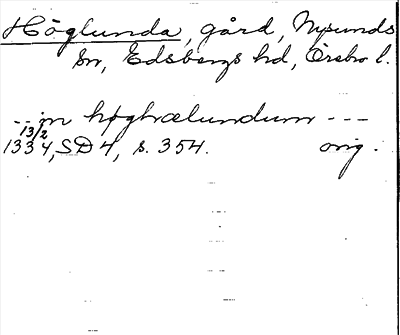 Höglunda, gård, Nysunds
sn, Edsbergs hd, Örebro l.
--in høghælundum ---
13/2
1334, SD 4, s. 354. orig.